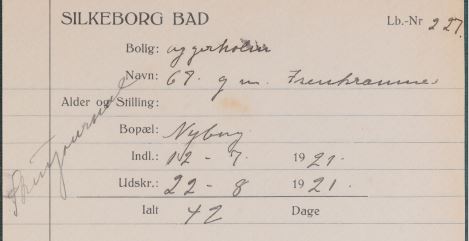 SILKEBORG BAD
Lb.-Nr 227.
Bolig:
Navn: 67. g m.
Alder og Stilling:
Bopæl: Nyborg
Indl.: 12 - 7. 1921.
Udskr.: 22 - 8 1921.
Ialt 42 Dage